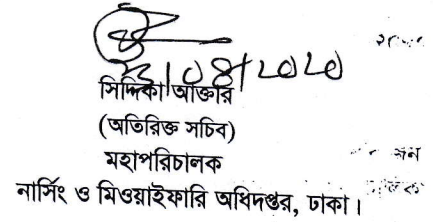 সিদ্দিকা আক্তার
(অতিরিক্ত সচিব)
মহাপরিচালক
নার্সিং ও মিওয়াইফারি অধিদপ্তর, ঢাকা।